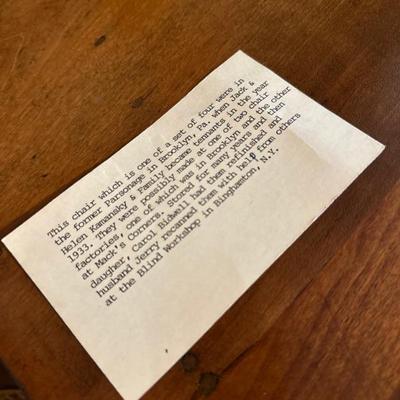 This chair which is one of a set of four were in
the former Parsonage in Brooklyn, Pa. when Jack &
Helen Kamansky & Family became tennants in the year
1933. They were possibly made at one of two chair
factories, one of which was in Brooklyn and the other
at Mack's Corners. Stored for many years and then
daugher, Carol Bidwell had them refinished and
husband Jerry recanned them with help from others
at the Blind Workshop in Binghamton, N.Y.